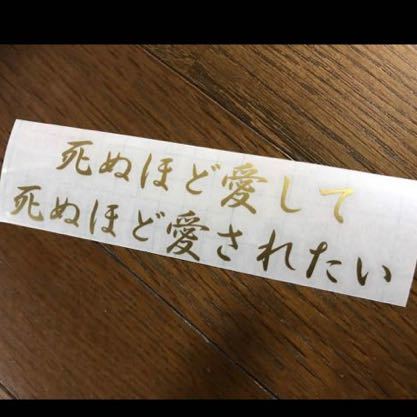 死ぬほど愛して
死ぬほど愛されたい